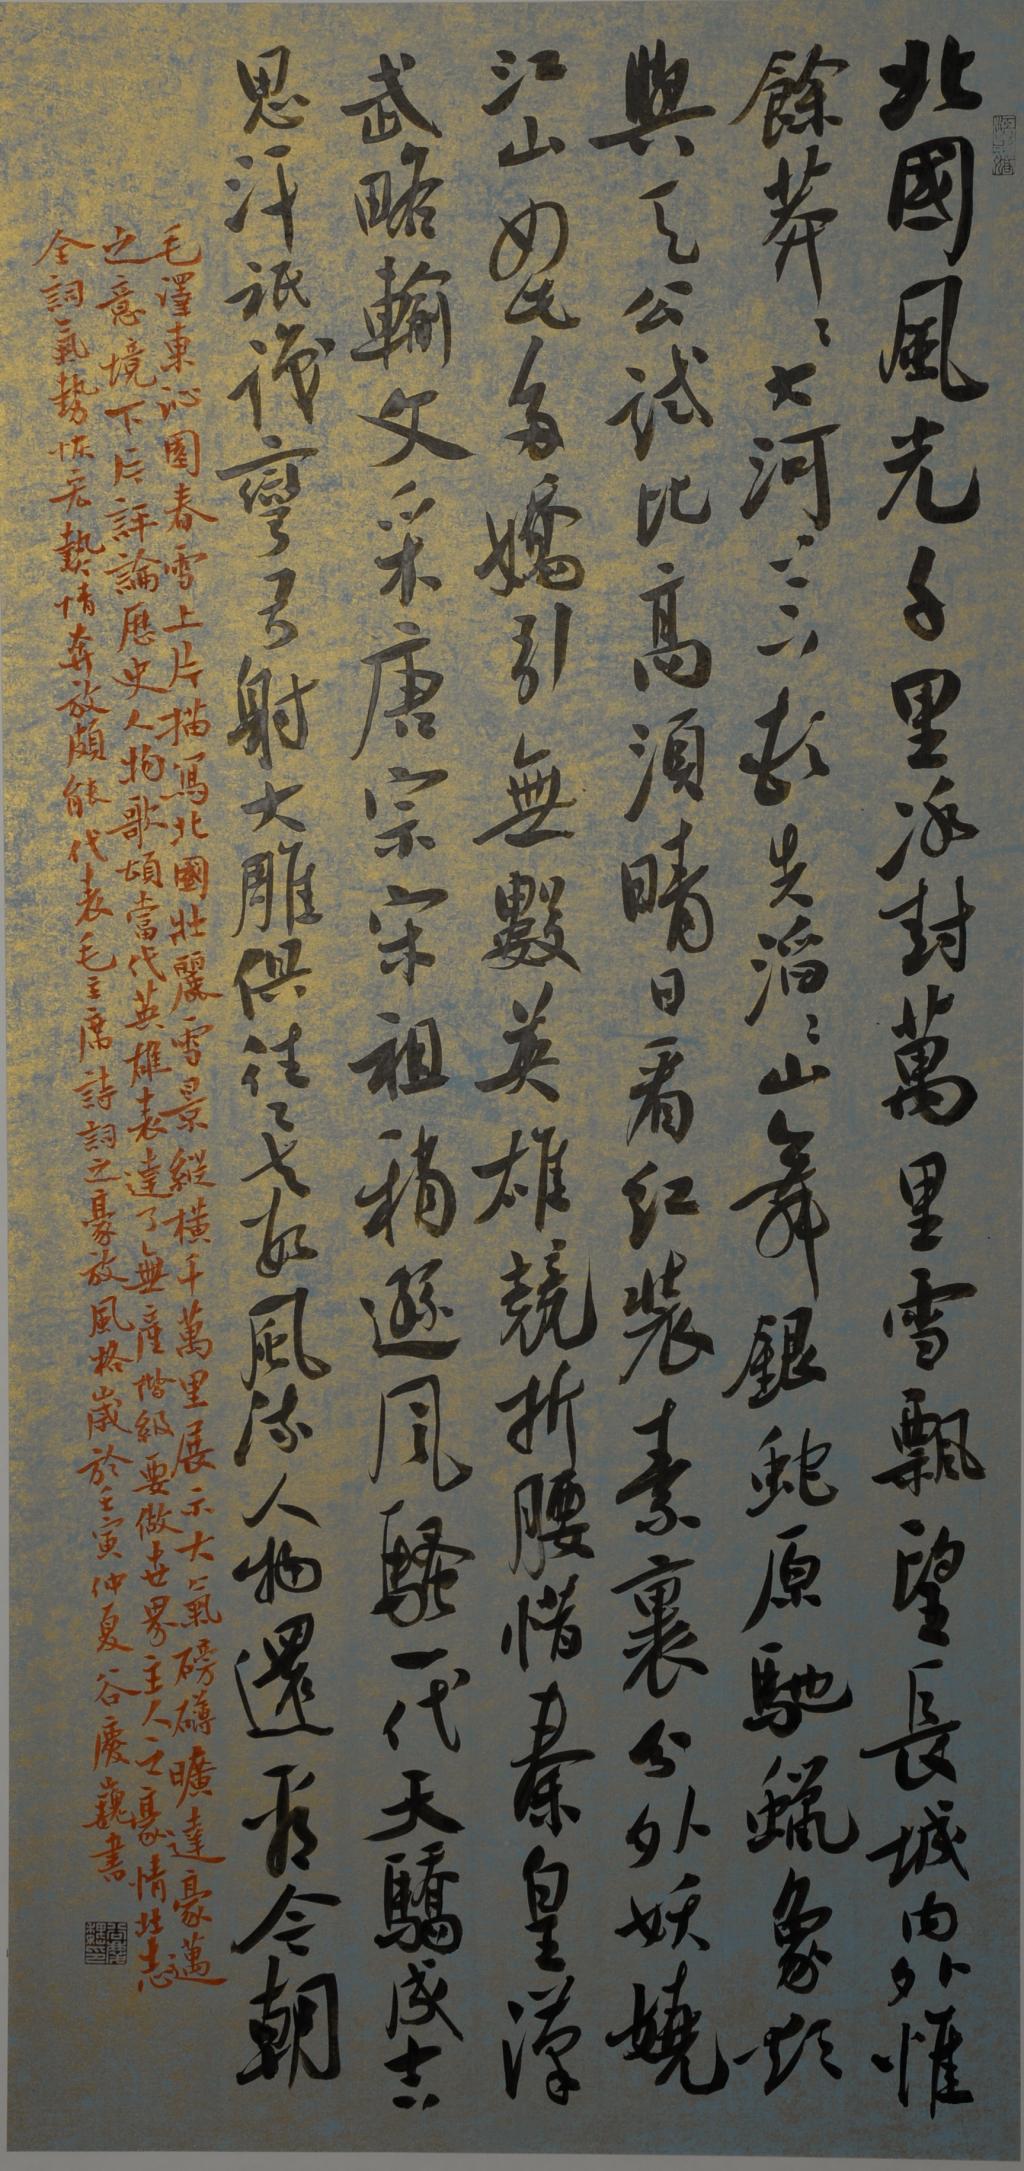 北國風光千里冰封萬里雪飄望長城內外惟
餘莽〻大河上下頓失滔〻山舞銀蛇原馳蠟象欲
與天公試比高須晴日看紅裝素裹分外妖嬈
江山如此多嬌引無數英雄競折腰惜秦皇漢
武略輸文采唐宗宋祖稍遜風騷一代天驕成吉
思汗祇識彎弓射大雕俱往矣數風流人物還看今朝
毛澤東沁園春雪上片描寫北國壯麗雪景縱橫千萬里展示大氣磅礴曠達豪邁
之意境下片評論歷史人物歌頌當代英雄表達了無產階級要做世界主人之豪情壯志
全詞氣勢恢宏熱情奔放頗能代表毛主席詩詞之豪放風格歲於壬寅仲夏谷慶巍書